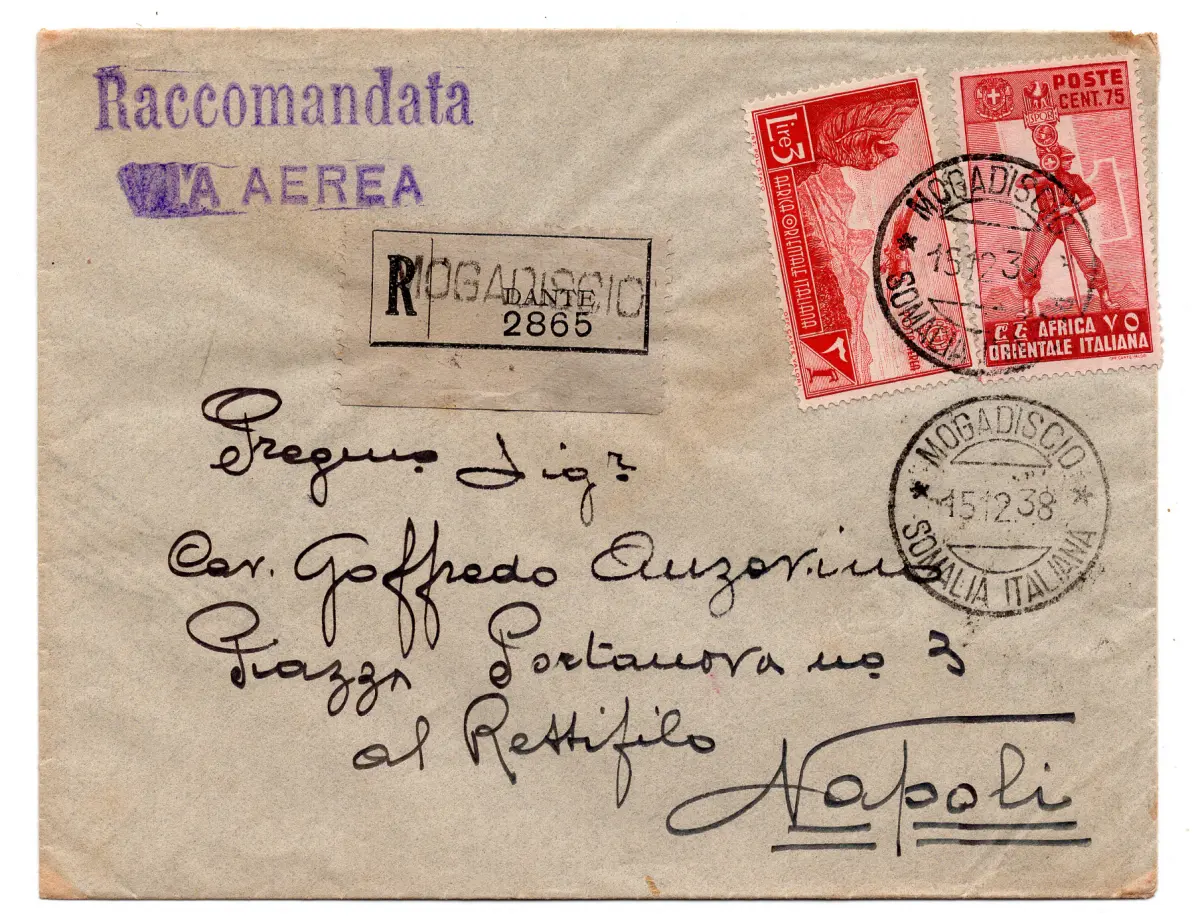 Raccomandata
VIA AEREA
R
MOGADISCIO
DANTE
2865
Lire 3
AFRICA ORIENTALE ITALIANA
٣
POSTE
CENT. 75
SPQR
٧٥
AFRICA
ORIENTALE ITALIANA
MOGADISCIO
15.12.38
SOMALIA ITALIANA
MOGADISCIO
15.12.38
SOMALIA ITALIANA
Pregmo Sigr
Cav. Goffredo Auzarino
Piazza Portanova no 3
al Rettifilo
Napoli